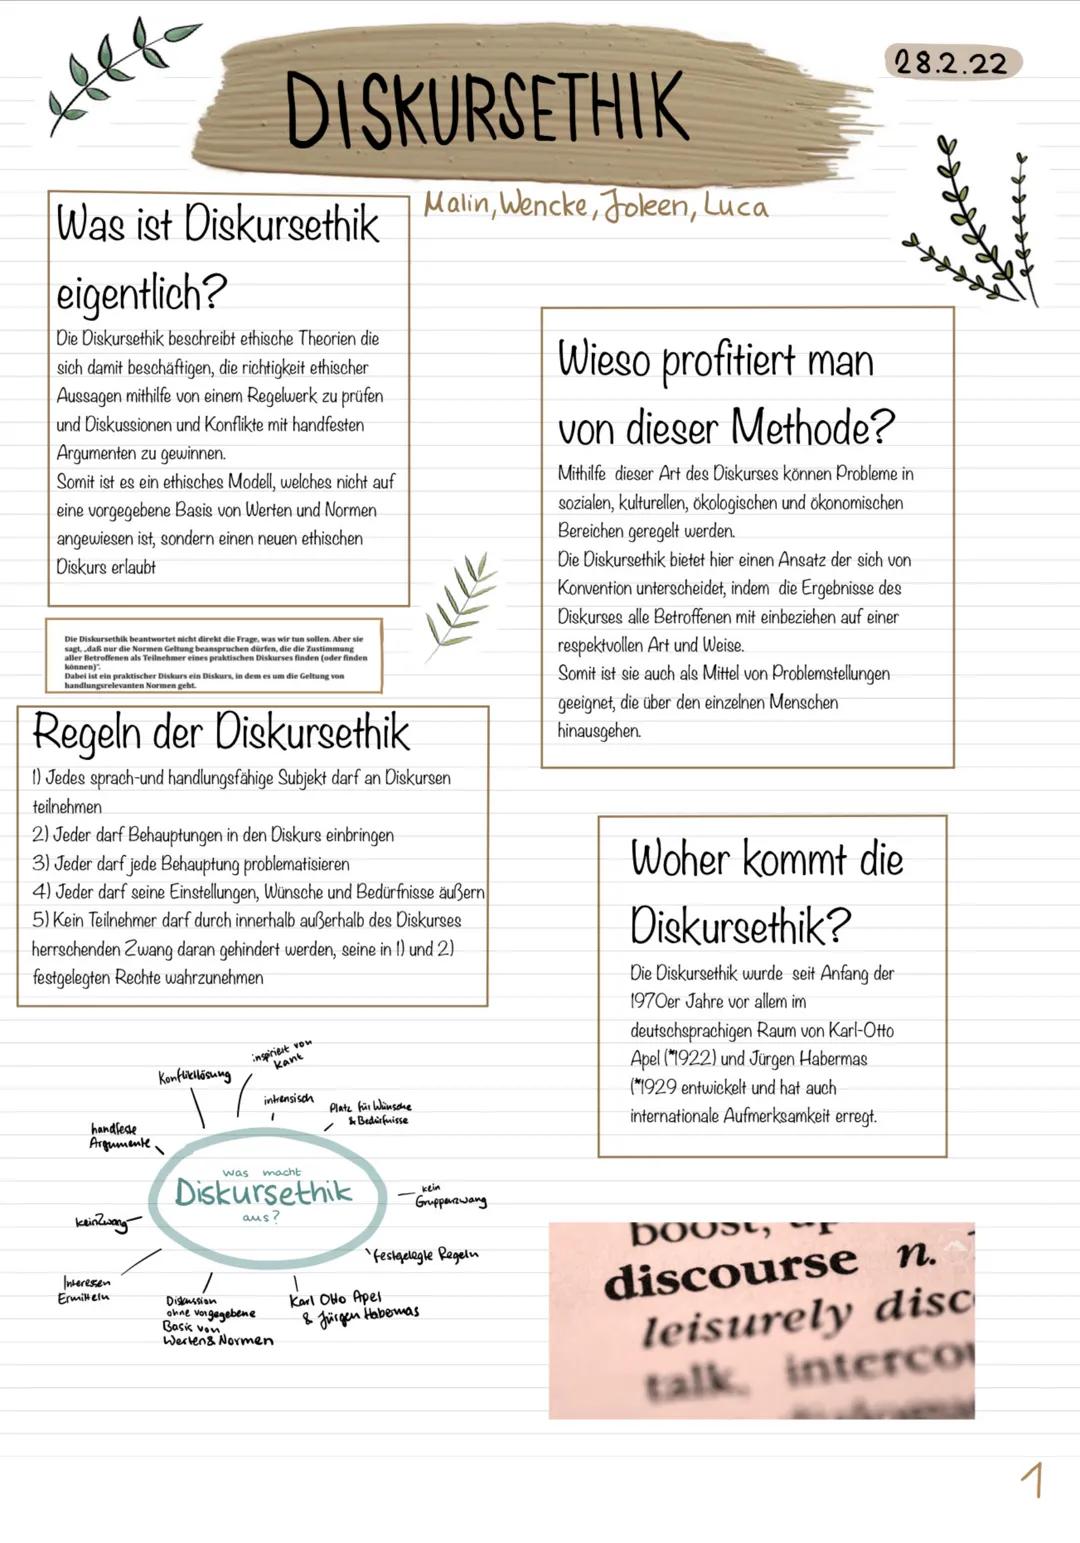 DISKURSETHIK
28.2.22
Malin, Wencke, Joleen, Luca
Was ist Diskursethik
eigentlich?
Die Diskursethik beschreibt ethische Theorien die
sich damit beschäftigen, die richtigkeit ethischer
Aussagen mithilfe von einem Regelwerk zu prüfen
und Diskussionen und Konflikte mit handfesten
Argumenten zu gewinnen.
Somit ist es ein ethisches Modell, welches nicht auf
eine vorgegebene Basis von Werten und Normen
angewiesen ist, sondern einen neuen ethischen
Diskurs erlaubt
Die Diskursethik beantwortet nicht direkt die Frage, was wir tun sollen. Aber sie
sagt, „daß nur die Normen Geltung beanspruchen dürfen, die die Zustimmung
aller Betroffenen als Teilnehmer eines praktischen Diskurses finden (oder finden
können)“.
Dabei ist ein praktischer Diskurs ein Diskurs, in dem es um die Geltung von
handlungsrelevanten Normen geht.
Regeln der Diskursethik
1) Jedes sprach-und handlungsfähige Subjekt darf an Diskursen
teilnehmen
2) Jeder darf Behauptungen in den Diskurs einbringen
3) Jeder darf jede Behauptung problematisieren
4) Jeder darf seine Einstellungen, Wünsche und Bedürfnisse äußern
5) Kein Teilnehmer darf durch innerhalb außerhalb des Diskurses
herrschenden Zwang daran gehindert werden, seine in 1) und 2)
festgelegten Rechte wahrzunehmen
Wieso profitiert man
von dieser Methode?
Mithilfe dieser Art des Diskurses können Probleme in
sozialen, kulturellen, ökologischen und ökonomischen
Bereichen geregelt werden.
Die Diskursethik bietet hier einen Ansatz der sich von
Konvention unterscheidet, indem die Ergebnisse des
Diskurses alle Betroffenen mit einbeziehen auf einer
respektvollen Art und Weise.
Somit ist sie auch als Mittel von Problemstellungen
geeignet, die über den einzelnen Menschen
hinausgehen.
Woher kommt die
Diskursethik?
Die Diskursethik wurde seit Anfang der
1970er Jahre vor allem im
deutschsprachigen Raum von Karl-Otto
Apel (*1922) und Jürgen Habermas
(*1929 entwickelt und hat auch
internationale Aufmerksamkeit erregt.
inspiriert von
Kant
Konfliktlösung
intrensisch
Platz für Wünsche
& Bedürfnisse
handfeste
Argumente
was macht
Diskursethik
aus?
kein
Gruppenzwang
kein Zwang
festgelegte Regeln
Interessen
Ermitteln
Diskussion
ohne vorgegebene
Basis von
Werten & Normen
Karl Otto Apel
& Jürgen Habermas
boost,
discourse n.
leisurely disc
talk, interco
1